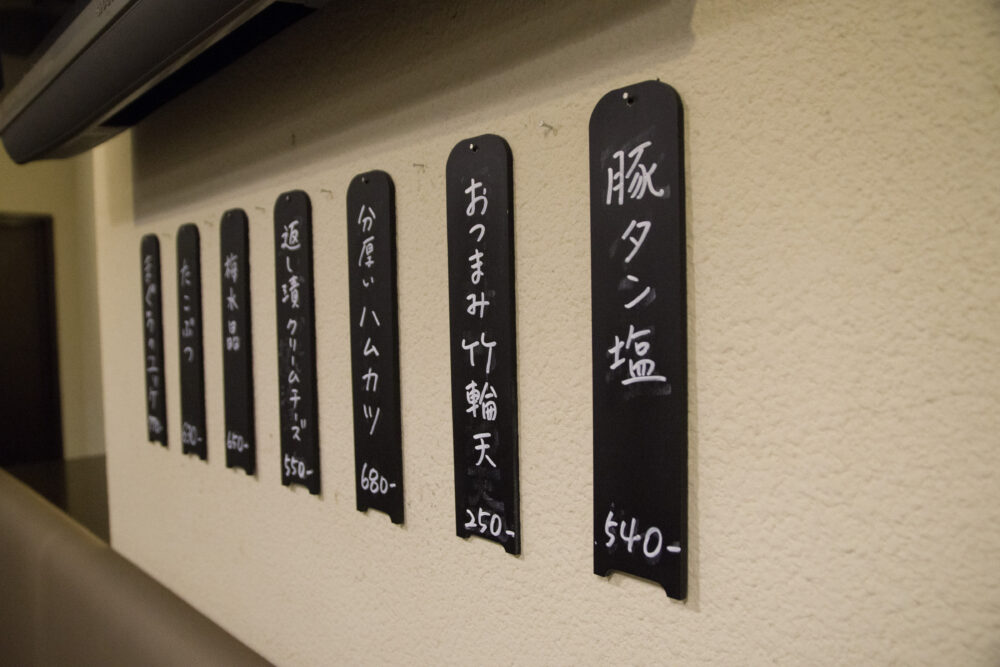 豚タン塩
540-
おつまみ竹輪天
250-
分厚いハムカツ
680-
返し漬クリームチーズ
550-
梅水晶
650-
たこぶつ
630-
まぐろユッケ